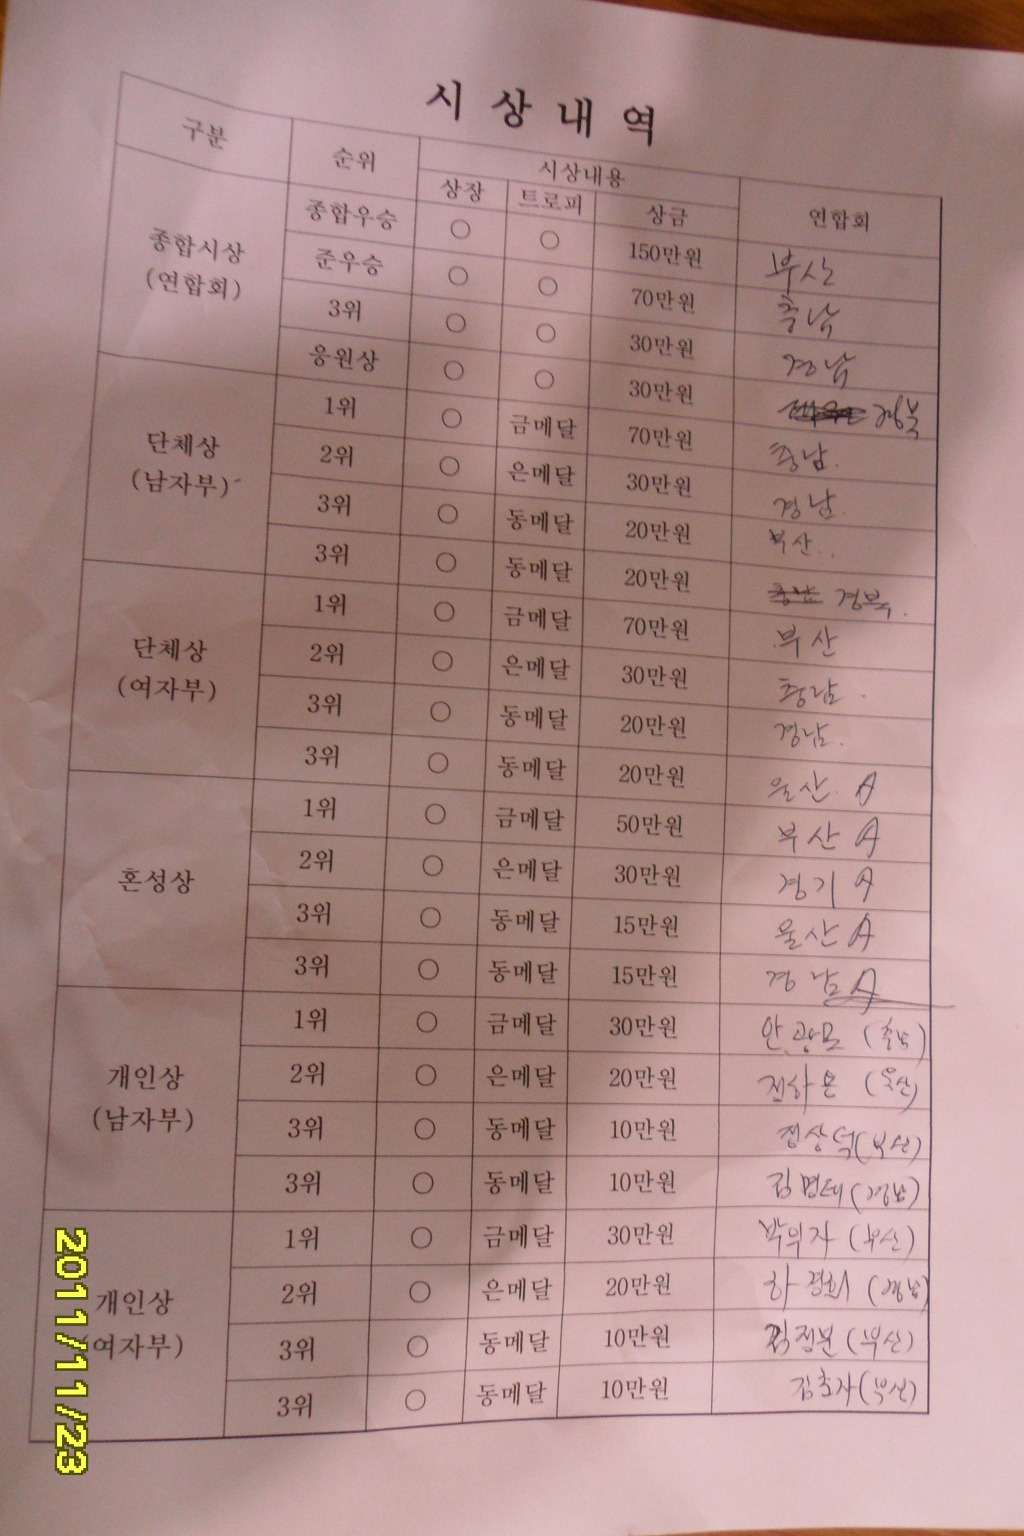 시 상 내 역
구분 순위 시상내용 연합회
상장 트로피 상금
종합시상 (연합회)
종합우승 ○ ○ 150만원 부산
준우승 ○ ○ 70만원 충남
3위 ○ ○ 30만원 경남
응원상 ○ ○ 30만원 경북
단체상 (남자부)
1위 ○ 금메달 70만원 충남.
2위 ○ 은메달 30만원 경남.
3위 ○ 동메달 20만원 부산..
3위 ○ 동메달 20만원 경북.
단체상 (여자부)
1위 ○ 금메달 70만원 부산
2위 ○ 은메달 30만원 충남.
3위 ○ 동메달 20만원 경남.
3위 ○ 동메달 20만원 울산. A
혼성상
1위 ○ 금메달 50만원 부산 A
2위 ○ 은메달 30만원 경기 A
3위 ○ 동메달 15만원 울산 A
3위 ○ 동메달 15만원 경남 A
개인상 (남자부)
1위 ○ 금메달 30만원 안광모 (충남)
2위 ○ 은메달 20만원 (울산)
3위 ○ 동메달 10만원 정상덕 (부산)
3위 ○ 동메달 10만원 김명태 (경남)
개인상 (여자부)
1위 ○ 금메달 30만원 박위자 (부산)
2위 ○ 은메달 20만원 하경희 (경남)
3위 ○ 동메달 10만원 김정분 (부산)
3위 ○ 동메달 10만원 김효자 (부산)
2011/11/23